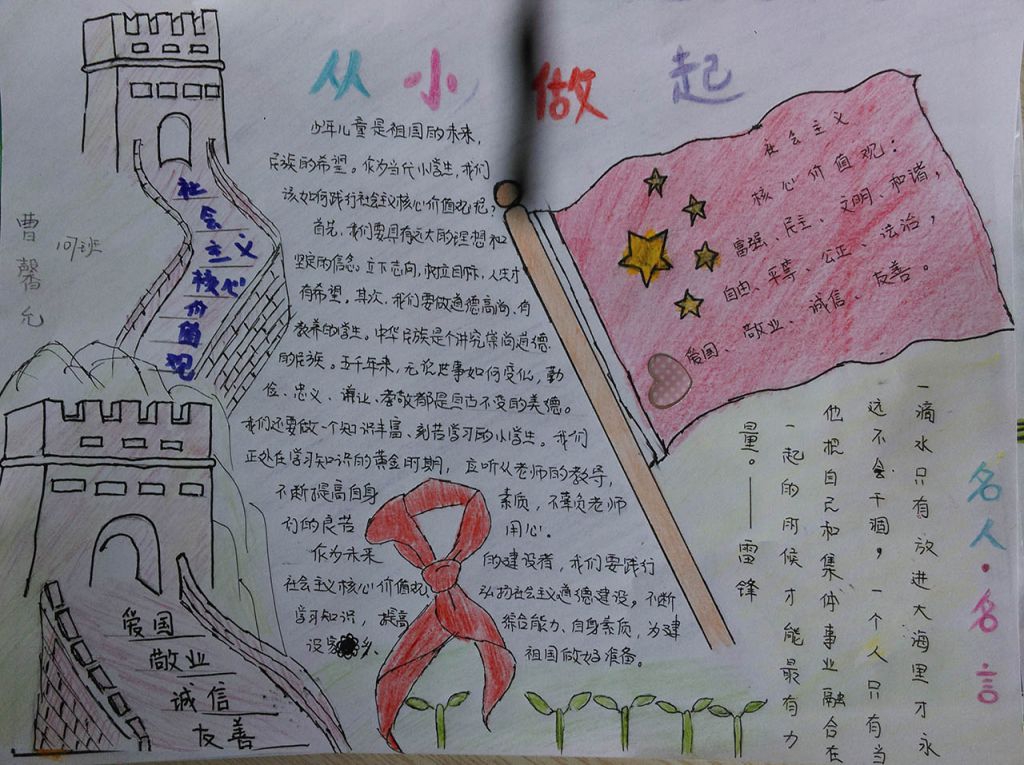 从小做起
少年儿童是祖国的未来,
民族的希望。作为当代小学生,我们
该如何践行社会主义核心价值观呢?
首先,我们要具有远大的理想和
坚定的信念。立下志向,树立目标,人生才
有希望。其次,我们要做道德高尚、有
教养的学生。中华民族是个讲究崇尚道德
的民族。五千年来,无论世事如何变化,勤
俭、忠义、谦让、孝敬都是亘古不变的美德。
我们还要做一个知识丰富、刻苦学习的小学生。我们
正处在学习知识的黄金时期,应听从老师的教导,
不断提高自身素质,不辜负老师
们的良苦用心。
作为未来的建设者,我们要践行
社会主义核心价值观,弘扬社会主义道德建设。不断
学习知识,提高综合能力、自身素质,为建
设家乡、祖国做好准备。
社会主义核心价值观
曹馨允
107班
爱国
敬业
诚信
友善
社会主义
核心价值观:
富强、民主、文明、和谐,
自由、平等、公正、法治,
爱国、敬业、诚信、友善。
名人·名言
一滴水只有放进大海里才永
远不会干涸,一个人只有当
他把自己和集体事业融合在
一起的时候才能最有力
量。——雷锋